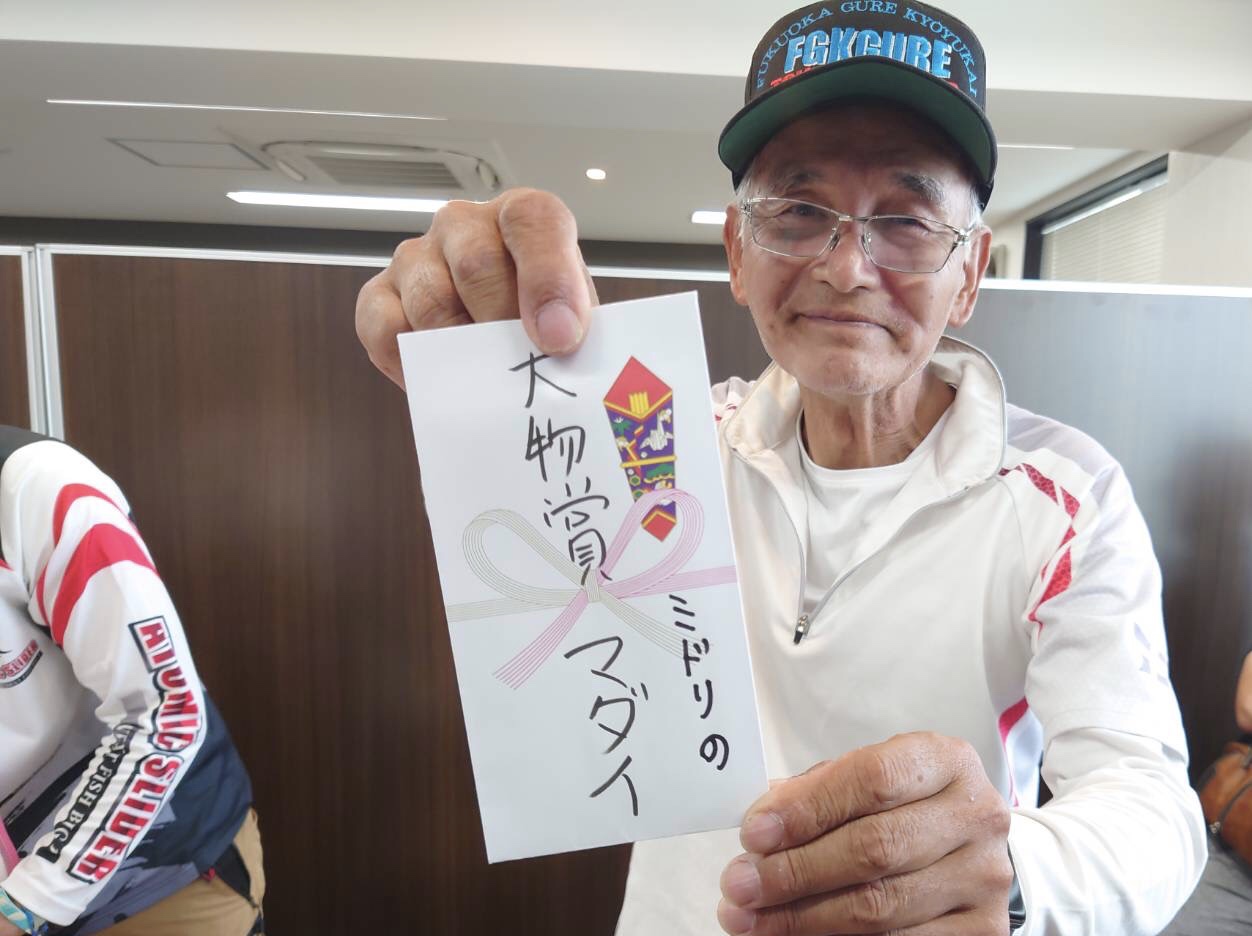 FUKUOKA GURE KYOYUKAI
FGKGURE
大物賞
マダイ
ミドリの
HIONIC SLIDER